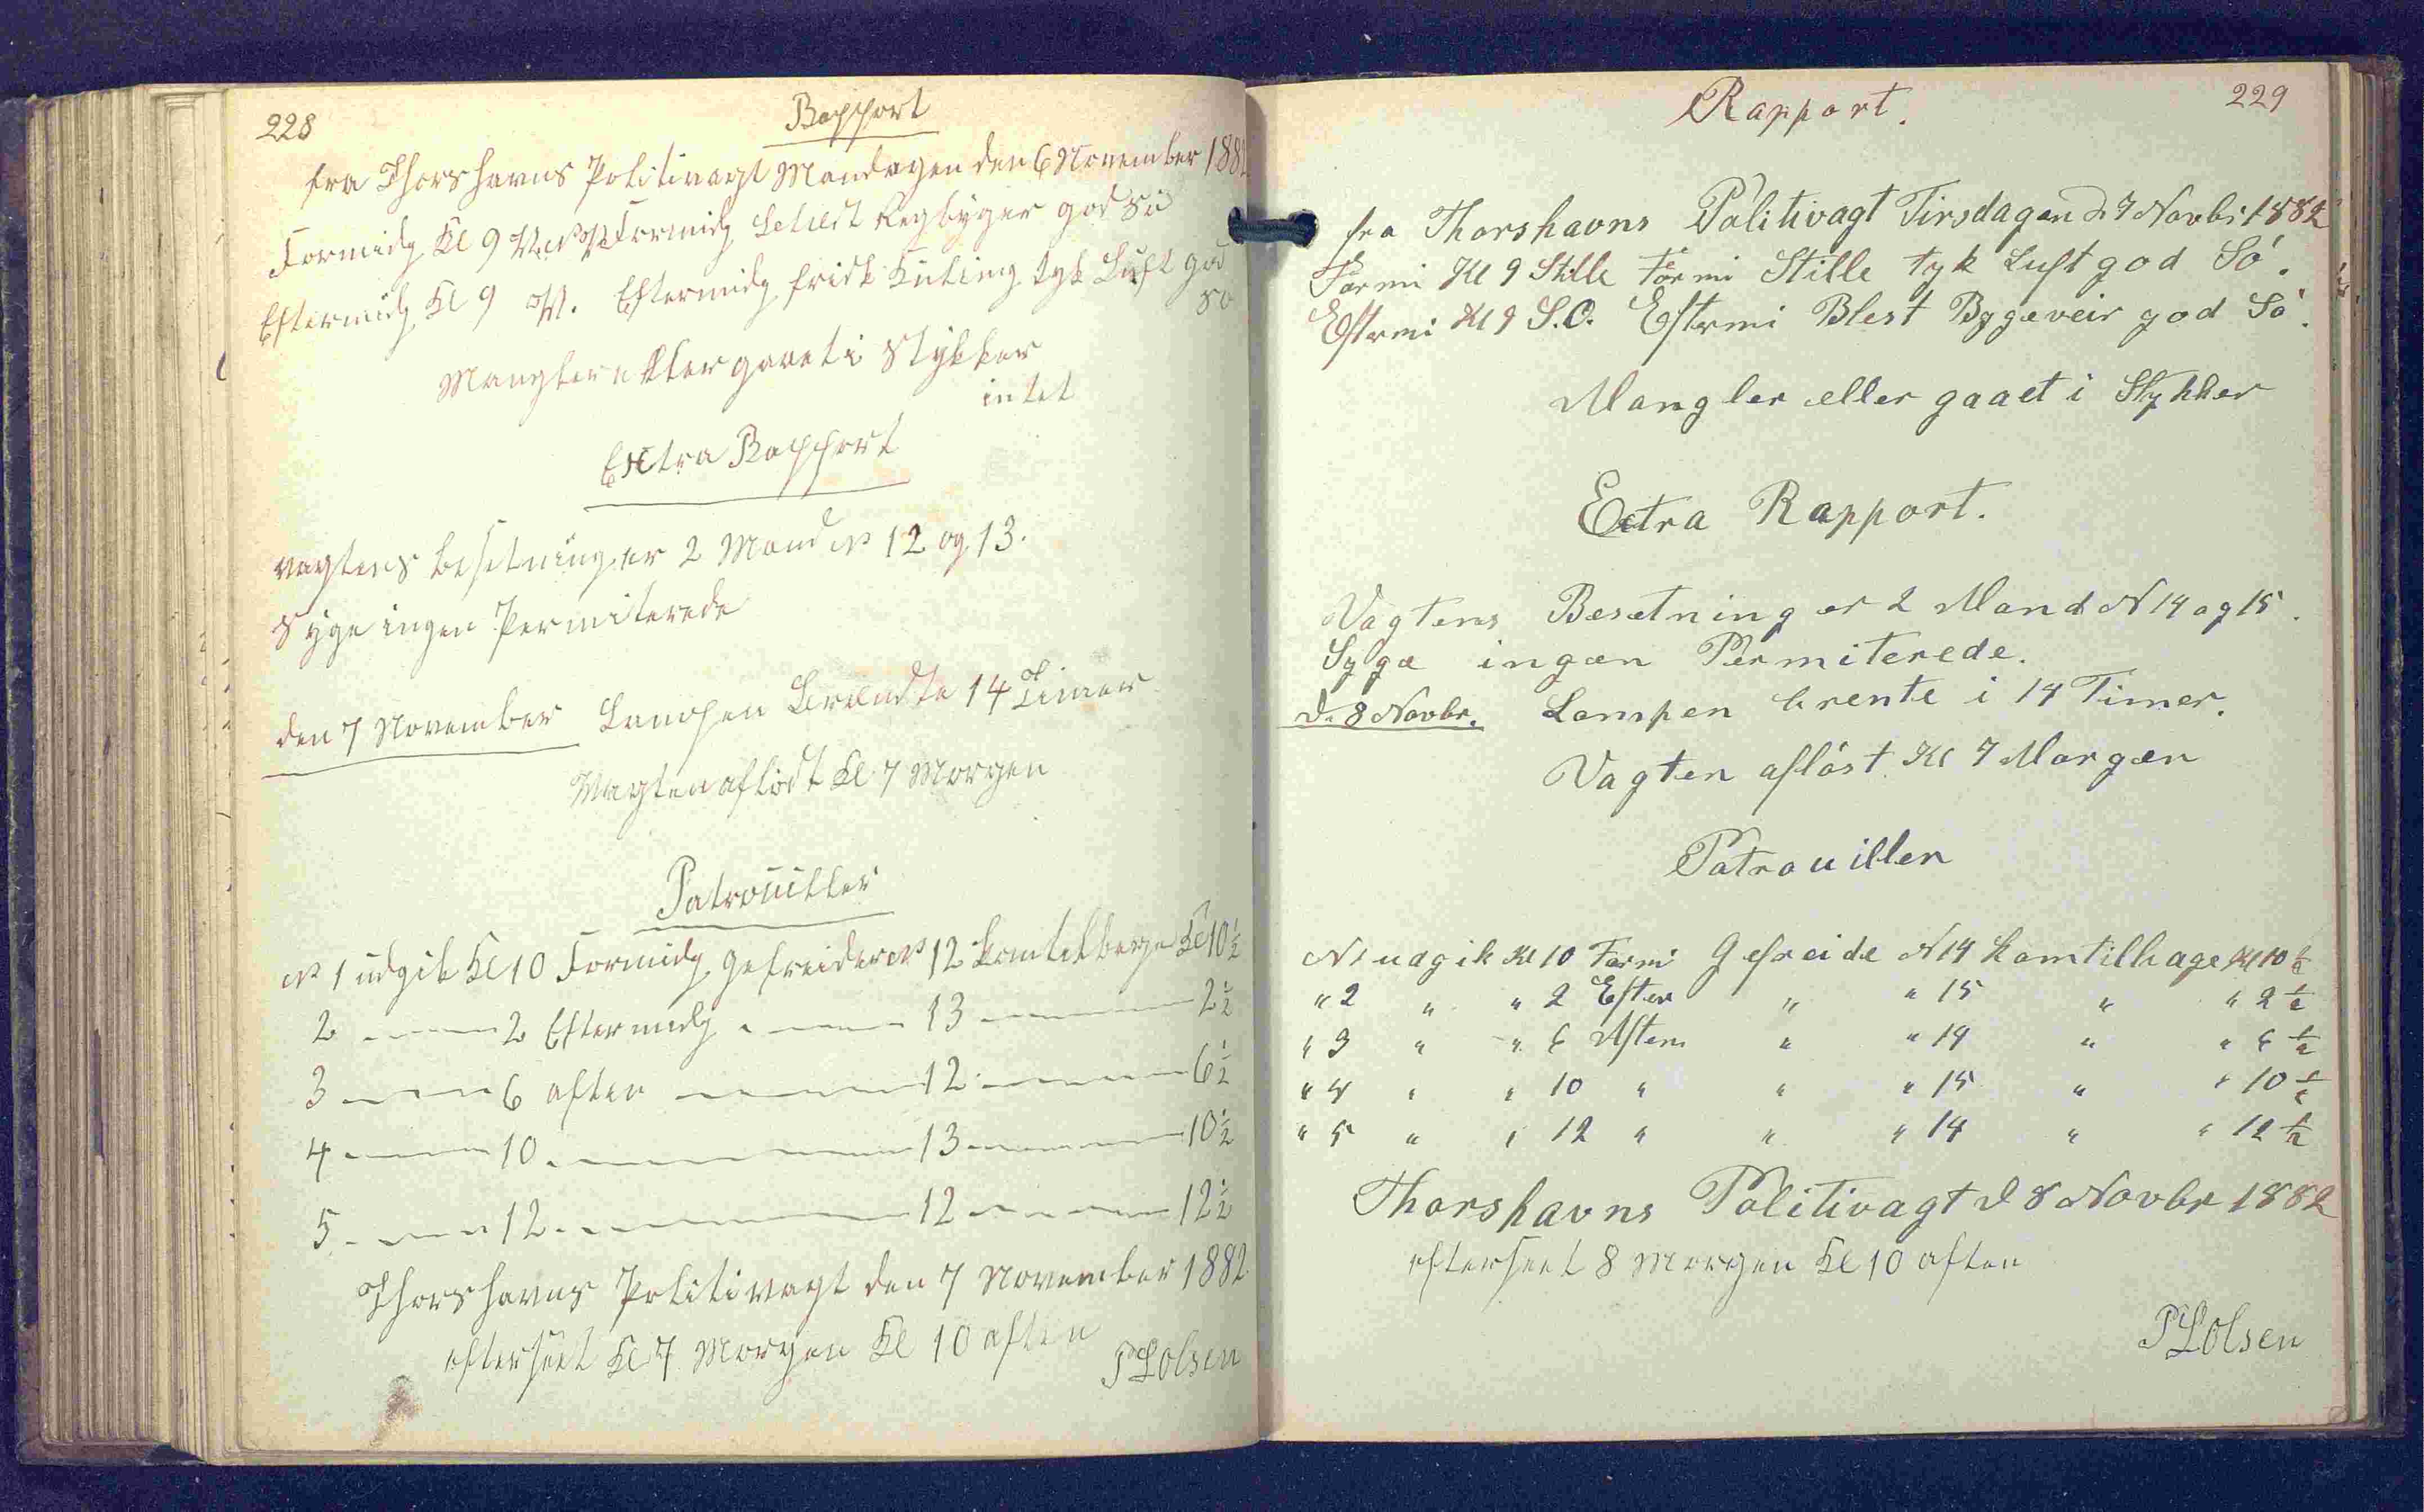 228
Rapport
fra Thorshavns Politivagt Mandagen den 6 November 1882
Formidg Kl 9 Formidg Blest Regbyger god Sö
Eftermidg Kl 9 V. Eftermidg frisk Kuling tyk Luft god
Sö
Mangler eller gaaet i Stykker
intet
Extra Rapport
Vagtens besetning er 2 Mand No 12 og 13.
Syge ingen Permiterede
den 7 November Lampen Brændte 14 Timer
Vagten aflöst Kl 7 Morgen
Patrouiller
No 1 udgik Kl 10 Formidg Gefreider No 12 kom tilbage Kl 10½
2 — 2 Eftermidg — 13 — 2½
3 — 6 aften — 12 — 6½
4 — 10 — 13 — 10½
5 — 12 — 12 — 12½
Thorshavns Politivagt den 7 November 1882
efterseet Kl 7 Morgen Kl 10 aften
PLOlsen
229
Rapport.
fra Thorshavns Politivagt Tirsdagen d. 7 Novbr 1882
Formi Kl 9 Stille Formi Stille tyk Luft god Só.
Eftrmi Kl 9 S.O. Eftermi Blest Bygeveir god Só.
Mangler eller gaaet i Stykker
Extra Rapport.
Vagtens Besetning er 2 Mand N 14 og 15.
Syge ingen Permiterede.
d. 8 Novbr. Lampen brente i 14 Timer.
Vagten aflóst Kl 7 Morgen
Patrouiller
N 1 udgik Kl 10 Formi Gefreide N 14 kom tilbage Kl 10½
" 2 " " 2 Efter " " 15 " " 2½
" 3 " " 6 Aften " " 14 " " 6½
" 4 " " 10 " " " 15 " " 10½
" 5 " " 12 " " " 14 " " 12½
Thorshavns Politivagt d 8 Novbr 1882
efterseet 8 Morgen Kl 10 aften
PLOlsen